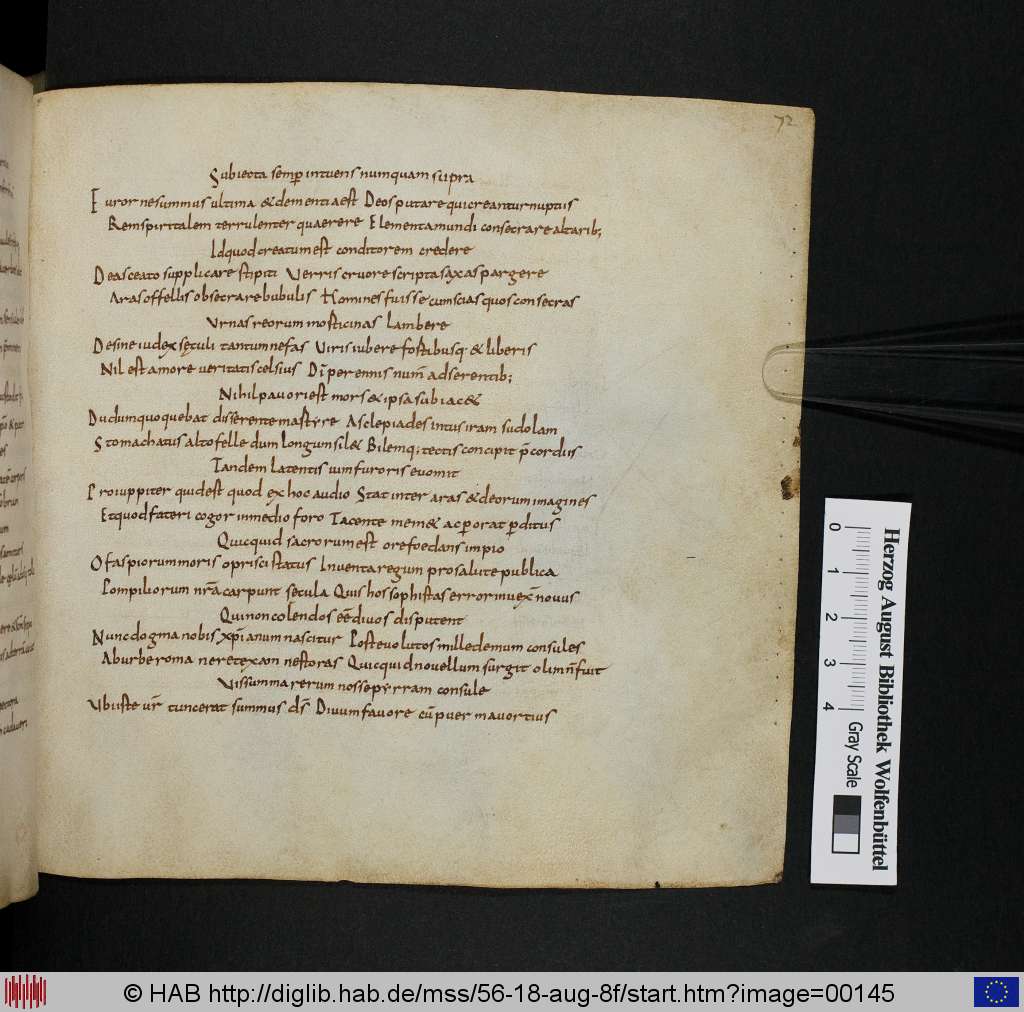 72
Subiecta semp intuens numquam supra
Furor nesummus ultima & dementia est Deos putare qui creantur nuptiis
Rem spiritalem terrulenter quaerere Elementa mundi consecrare altarib;
Id quod creatum est conditorem credere
Deasceato supplicare stipiti Verris cruore scripta saxa spargere
Aras offellis obsecrare bubulis Homines fuisse cum scias quos consecras
Urnas reorum mosticinas lambere
Desine iudex sęculi tantum nefas Viris iubere fortibusq; & liberis
Nil est amore veritatis celsius Dī perennis num adserentib;
Nihil pavori est mors & ipsa subiac&
Dudum quoquebat disserente martyre Asclepiades intus iram sudolam
Stomachatus alto felle dum longum sil& Bilemq; tectis concipit p̄cordiis
Tandem latentis vim furoris evomit
Proiuppiter quid est quod ex hoc audio Stat inter aras & deorum imagines
Et quod fateri cogor in medio foro Tacente mem& ac perorat perditus
Quicquid sacrorum est ore foedans impio
O fas piorum moris o prisci status Inventa regum pro salute publica
Pompiliorum nr̄a carpunt secula Quis hos sophistas error invex̄ novus
Qui non colendos eē divos disputent
Nunc dogma nobis xp̄ianum nascitur Post evolutos mille demum consules
Ab urbe roma neretexaon nestoras Quicquid novellum surgit olim n̄ fuit
Vis summa rerum nosse pyrram consule
Ubi iste vr̄ tunc erat summus ds̄ Divum favore cū puer mavortius
0 1 2 3 4
Herzog August Bibliothek Wolfenbüttel
Gray Scale
© HAB http://diglib.hab.de/mss/56-18-aug-8f/start.htm?image=00145